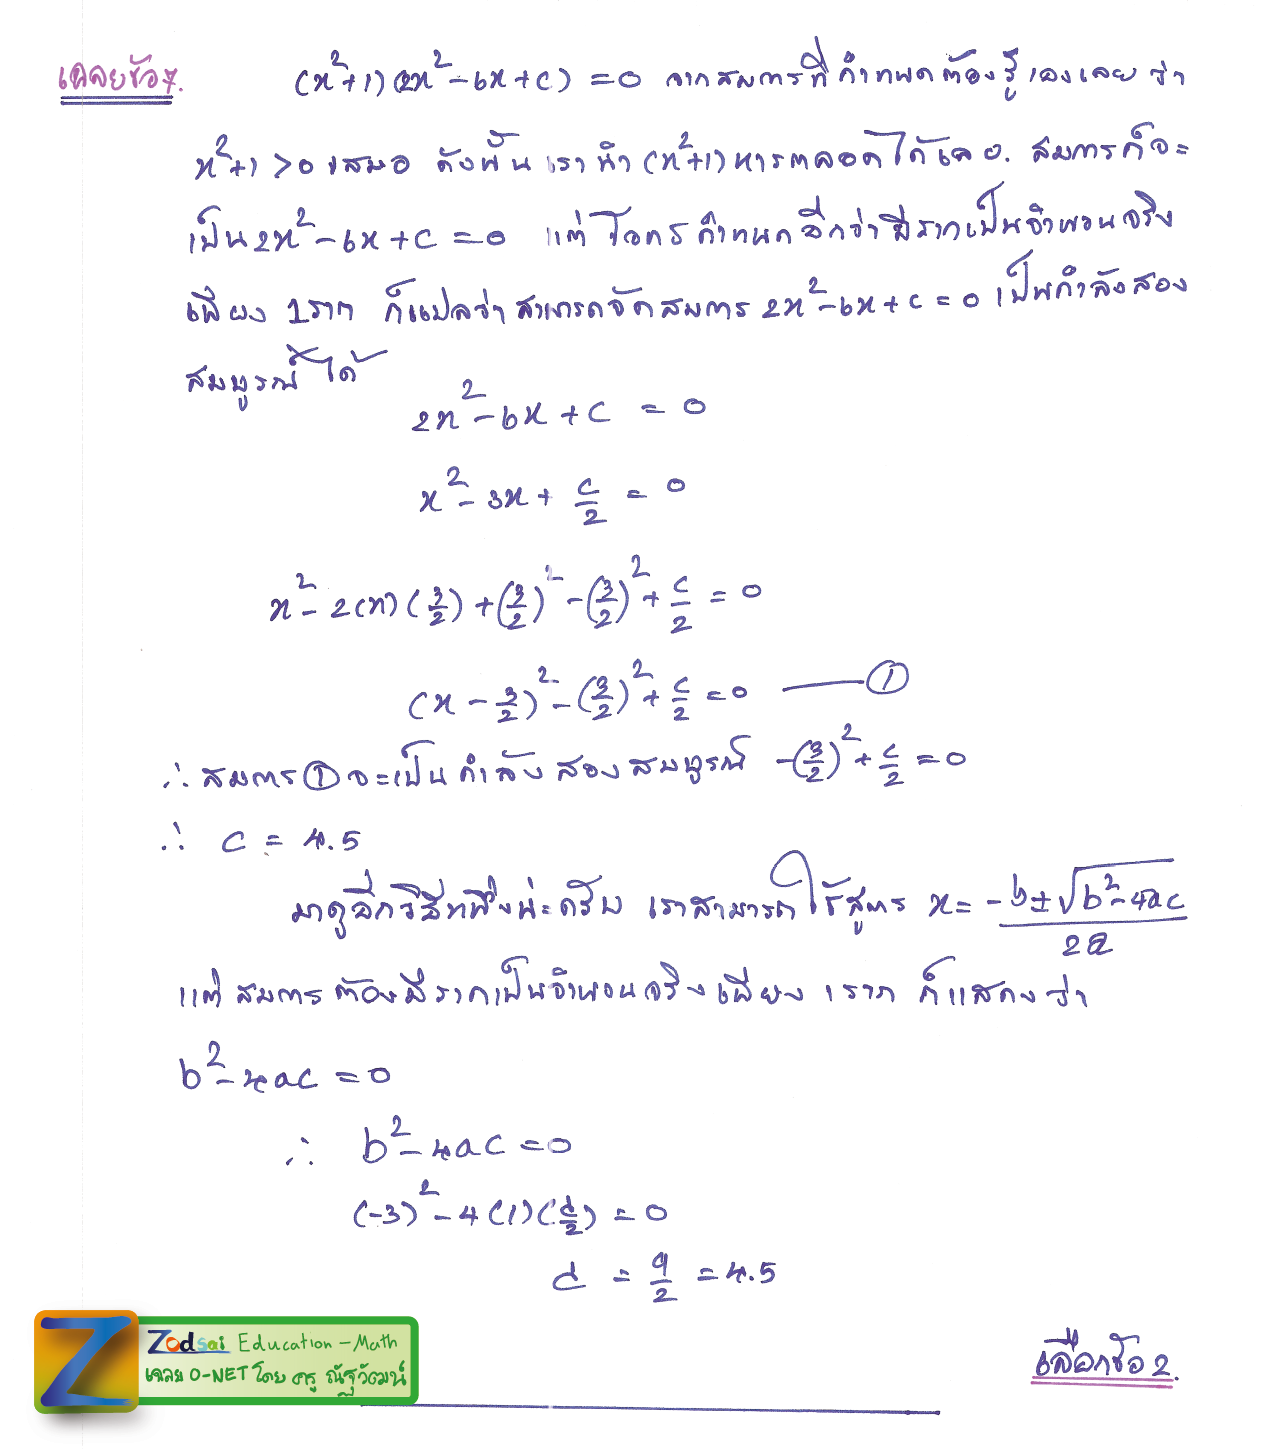 เฉลยข้อ 7. (x²+1)(2x²-6x+c) = 0 จากสมการที่กำหนดต้องรู้เองเลยว่า
x²+1 > 0 เสมอ ดังนั้น เรานำ (x²+1) หารตลอดได้เลย. สมการก็จะ
เป็น 2x²-6x+c = 0 แต่โจทย์กำหนดอีกว่ามีรากเป็นจำนวนจริง
เพียง 1 ราก ก็แปลว่าสามารถจัดสมการ 2x²-6x+c = 0 เป็นกำลังสอง
สมบูรณ์ได้
2x²-6x+c = 0
x²-3x+c/2 = 0
x²-2(x)(3/2)+(3/2)²-(3/2)²+c/2 = 0
(x-3/2)²-(3/2)²+c/2 = 0 ——— ①
∴ สมการ ① จะเป็นกำลังสองสมบูรณ์ -(3/2)²+c/2 = 0
∴ c = 4.5
มาดูอีกวิธีหนึ่งนะครับ เราสามารถใช้สูตร x = -b±√(b²-4ac)/2a
แต่สมการต้องมีรากเป็นจำนวนจริงเพียง 1 ราก ก็แสดงว่า
b²-4ac = 0
∴ b²-4ac = 0
(-3)²-4(1)(c/2) = 0
c = 9/2 = 4.5
Z Zodsai Education - Math
เฉลย O-NET โดย ครู ณัฐวัฒน์
เลือกข้อ 2.